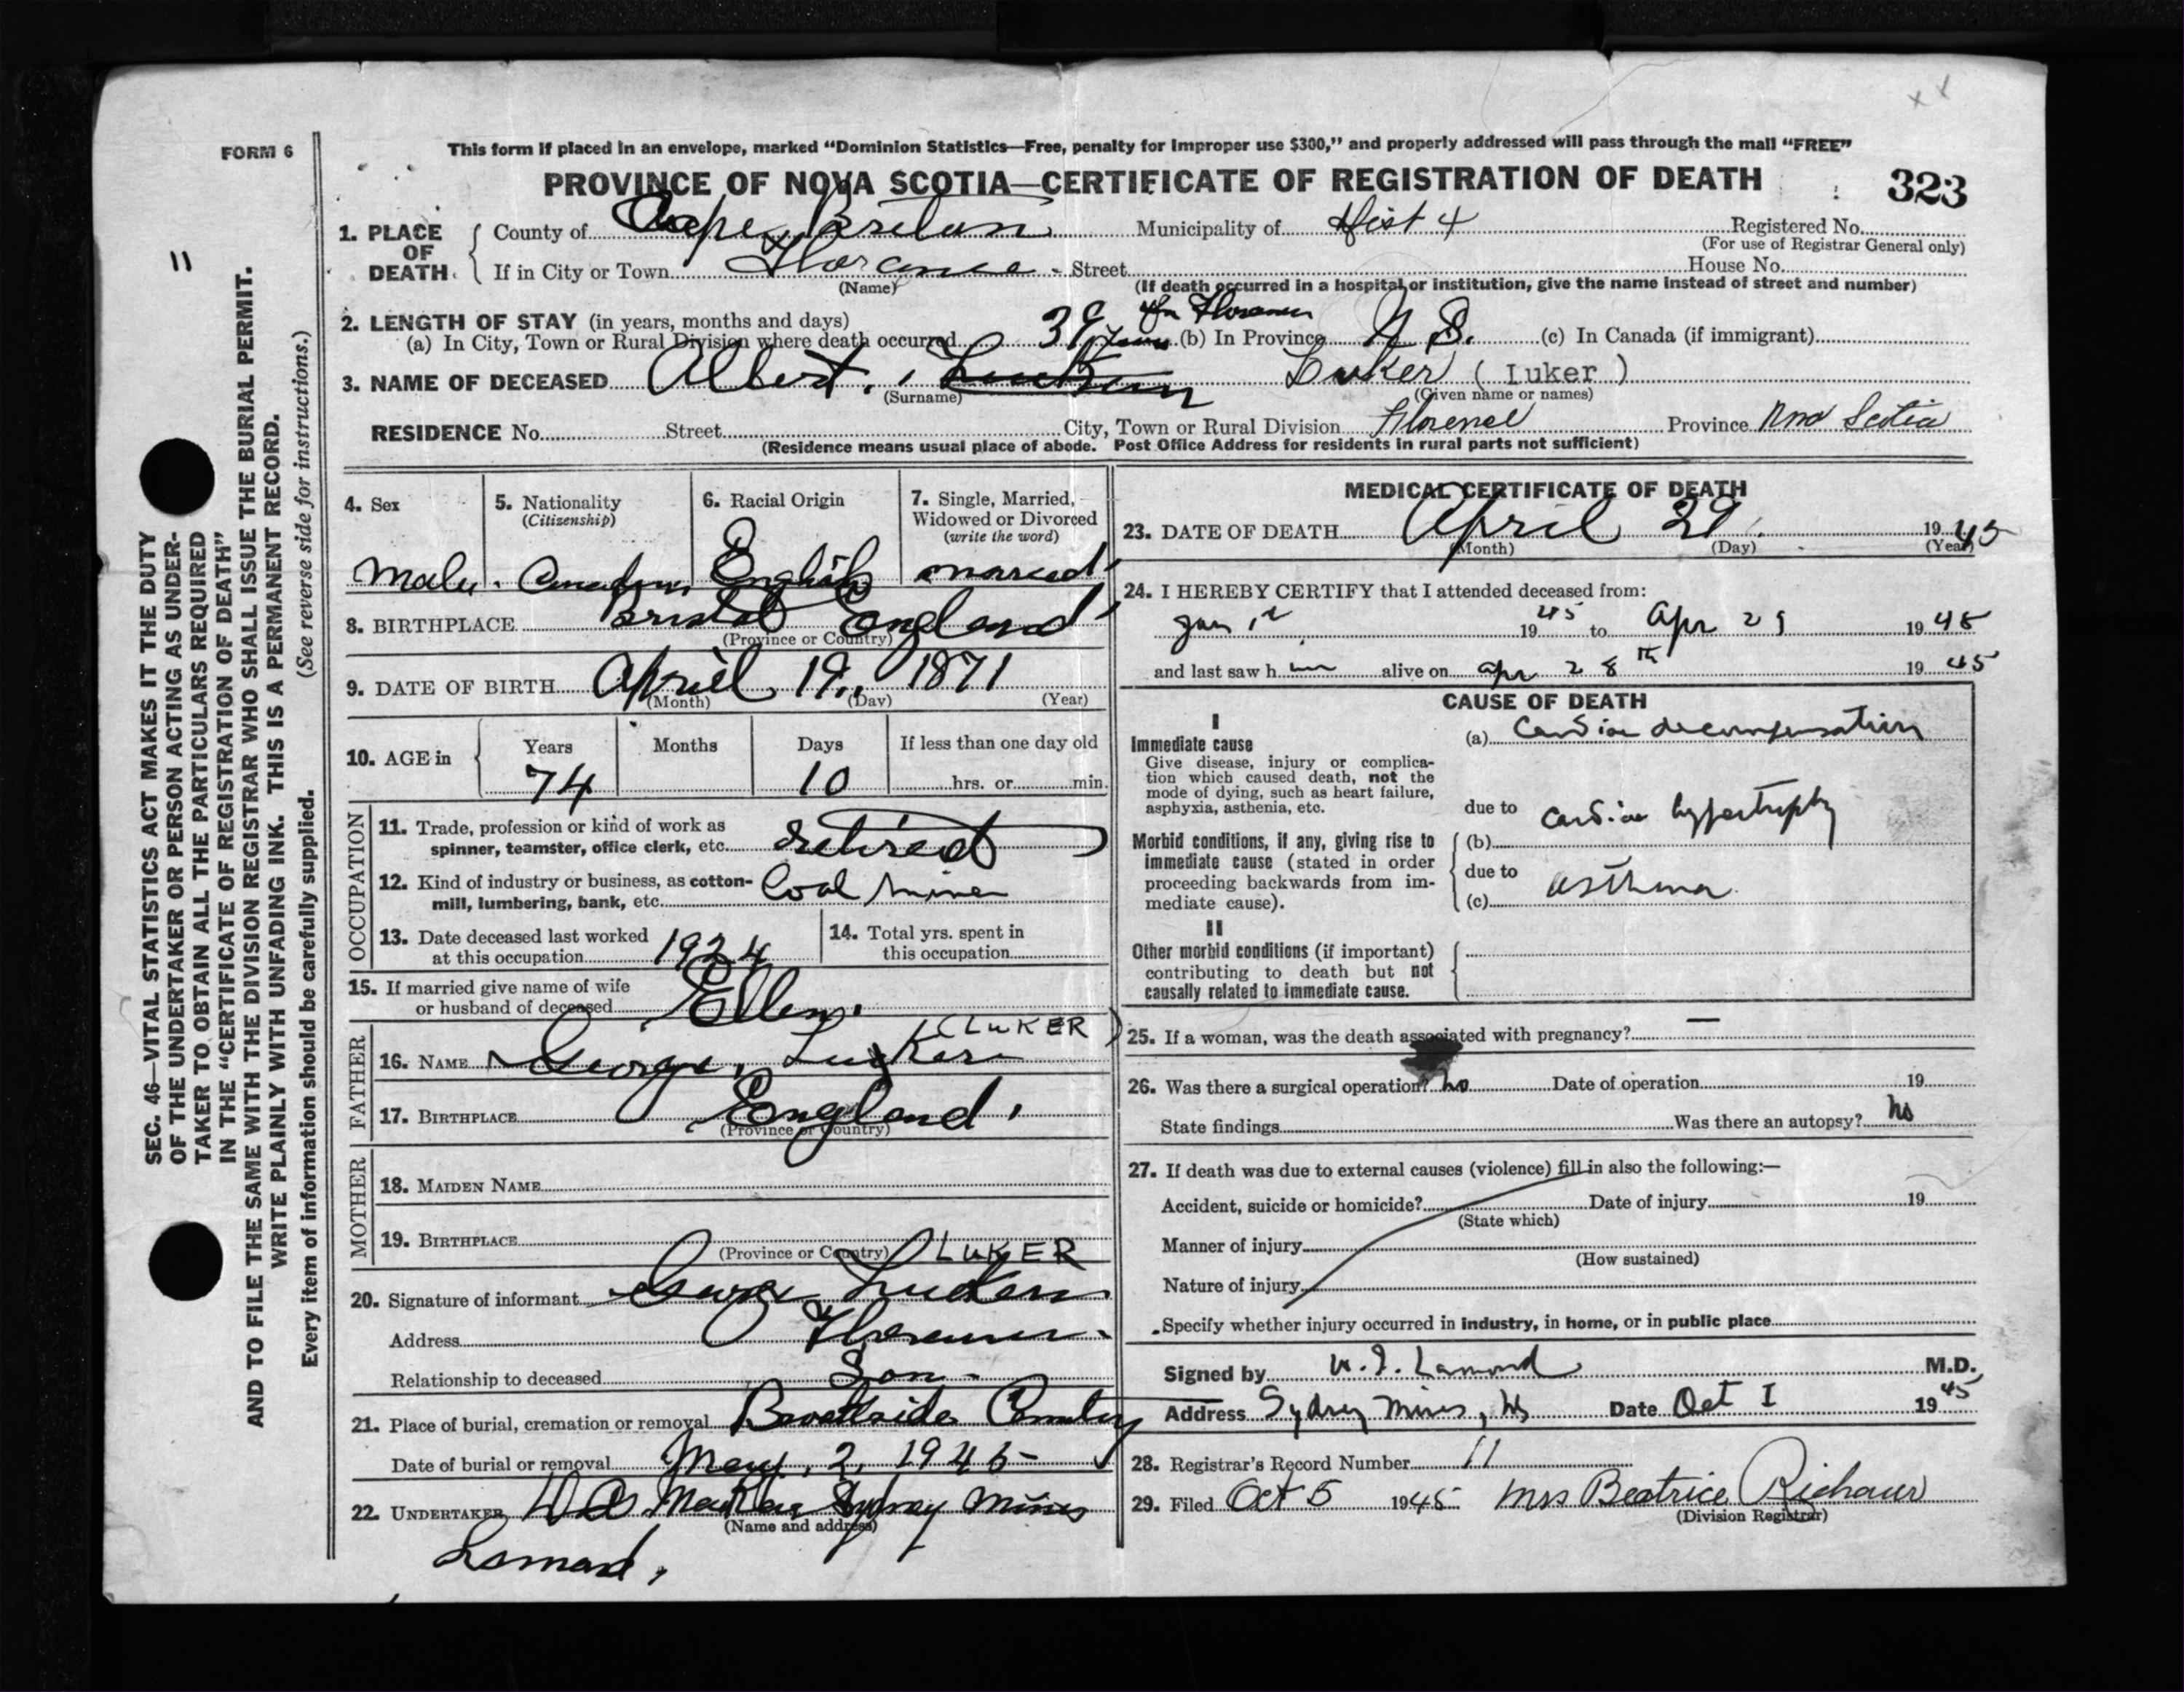 FORM 6
This form if placed in an envelope, marked “Dominion Statistics—Free, penalty for improper use $300,” and properly addressed will pass through the mail “FREE”
PROVINCE OF NOVA SCOTIA—CERTIFICATE OF REGISTRATION OF DEATH
323
1. PLACE OF DEATH
County of Cape Breton Municipality of Dist 4 Registered No.
(For use of Registrar General only)
If in City or Town Florence Street House No.
(Name) (If death occurred in a hospital or institution, give the name instead of street and number)
2. LENGTH OF STAY (in years, months and days)
(a) In City, Town or Rural Division where death occurred 39 years in Florence (b) In Province N S. (c) In Canada (if immigrant)
3. NAME OF DECEASED Albert. Luker ( Luker )
(Surname) (Given name or names)
RESIDENCE No. Street City, Town or Rural Division Florence Province Nova Scotia
(Residence means usual place of abode. Post Office Address for residents in rural parts not sufficient)
4. Sex
Male.
5. Nationality
(Citizenship)
Canadian
6. Racial Origin
English
7. Single, Married, Widowed or Divorced
(write the word)
married
8. BIRTHPLACE Bristol England
(Province or Country)
9. DATE OF BIRTH April 19, 1871
(Month) (Day) (Year)
10. AGE in
Years Months Days If less than one day old
74 10 hrs. or min.
OCCUPATION
11. Trade, profession or kind of work as
spinner, teamster, office clerk, etc. retired
12. Kind of industry or business, as cotton-
mill, lumbering, bank, etc. Coal mine
13. Date deceased last worked
at this occupation 1924
14. Total yrs. spent in
this occupation
15. If married give name of wife
or husband of deceased Ellen.
FATHER
(LUKER)
16. NAME George, Luker
17. BIRTHPLACE England.
(Province or Country)
MOTHER
18. MAIDEN NAME
19. BIRTHPLACE
(Province or Country) LUKER
20. Signature of informant George
Address Florence
Relationship to deceased Son
21. Place of burial, cremation or removal Brookside Cemetery
Date of burial or removal May. 2, 1945
22. UNDERTAKER Sydney Mines
(Name and address)
MEDICAL CERTIFICATE OF DEATH
23. DATE OF DEATH April 29, 1945
(Month) (Day) (Year)
24. I HEREBY CERTIFY that I attended deceased from:
Jan 1945 to Apr 29 1945
and last saw him alive on Apr 28th 1945
CAUSE OF DEATH
I
Immediate cause
Give disease, injury or complica-
tion which caused death, not the
mode of dying, such as heart failure,
asphyxia, asthenia, etc.
(a) Cardiac decompensation
due to cardiac hypertrophy
Morbid conditions, if any, giving rise to
immediate cause (stated in order
proceeding backwards from im-
mediate cause).
(b)
due to asthma
(c)
II
Other morbid conditions (if important)
contributing to death but not
causally related to immediate cause.
25. If a woman, was the death associated with pregnancy? —
26. Was there a surgical operation? no Date of operation 19
State findings Was there an autopsy? no
27. If death was due to external causes (violence) fill in also the following:—
Accident, suicide or homicide? Date of injury 19
(State which)
Manner of injury
(How sustained)
Nature of injury
Specify whether injury occurred in industry, in home, or in public place
Signed by Lamond M.D.
Address Sydney Mines, NS Date Oct I 1945
28. Registrar's Record Number 11
29. Filed Oct 5 1945 Mrs Beatrice
(Division Registrar)
11
SEC. 46—VITAL STATISTICS ACT MAKES IT THE DUTY
OF THE UNDERTAKER OR PERSON ACTING AS UNDER-
TAKER TO OBTAIN ALL THE PARTICULARS REQUIRED
IN THE “CERTIFICATE OF REGISTRATION OF DEATH”
AND TO FILE THE SAME WITH THE DIVISION REGISTRAR WHO SHALL ISSUE THE BURIAL PERMIT.
WRITE PLAINLY WITH UNFADING INK. THIS IS A PERMANENT RECORD.
Every item of information should be carefully supplied. (See reverse side for instructions.)